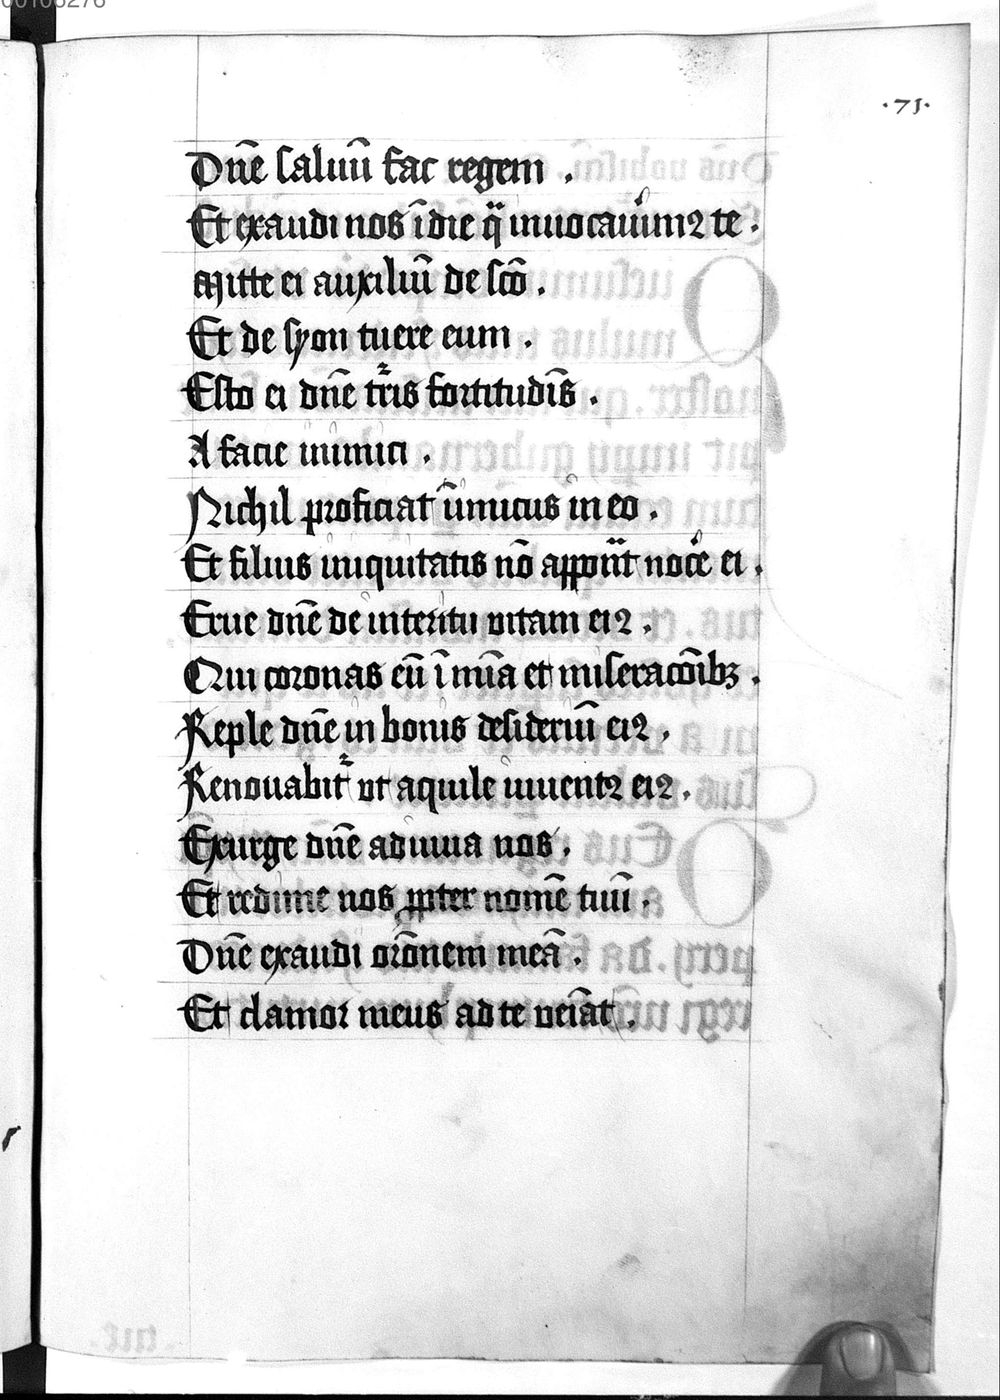 00106276
·71·
Dn̄e saluū fac regem .
Et exaudi nos ī die q̈ inuocauim⁹ te .
Mitte ei auxiliū de sc̄o .
Et de syon tuere eum .
Esto ei dn̄e tr̄ris fortitudīs .
A facie inimici .
Nichil proficiat inimicus in eo .
Et filius iniquitatis nō apponat noc̄e ei .
Erue dn̄e de interitu vitam ei⁹ .
Qui coronas eū ī mīa et miseracōibꝫ .
Reple dn̄e in bonis desideriū ei⁹ .
Renouabit̄ vt aquile iuuent⁹ ei⁹ .
Exurge dn̄e adiuua nos .
Et redime nos ꝓpter nomē tuū .
Dn̄e exaudi orōnem meā .
Et clamor meus ad te veīat .